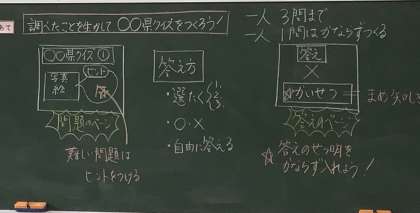 めあて
調べたことを生かして〇〇県クイズをつくろう!
一人 3問まで
一人 1問はかならずつくる
〇〇県クイズ①
ヒント
写真
絵
問題のページ
難しい問題は
ヒントをつける
答え方
・選たく
1
2
3
・〇・×
・自由に答える
答え
×
☆かいせつ
答えのページ
☆答えのせつ明を
かならず入れよう!